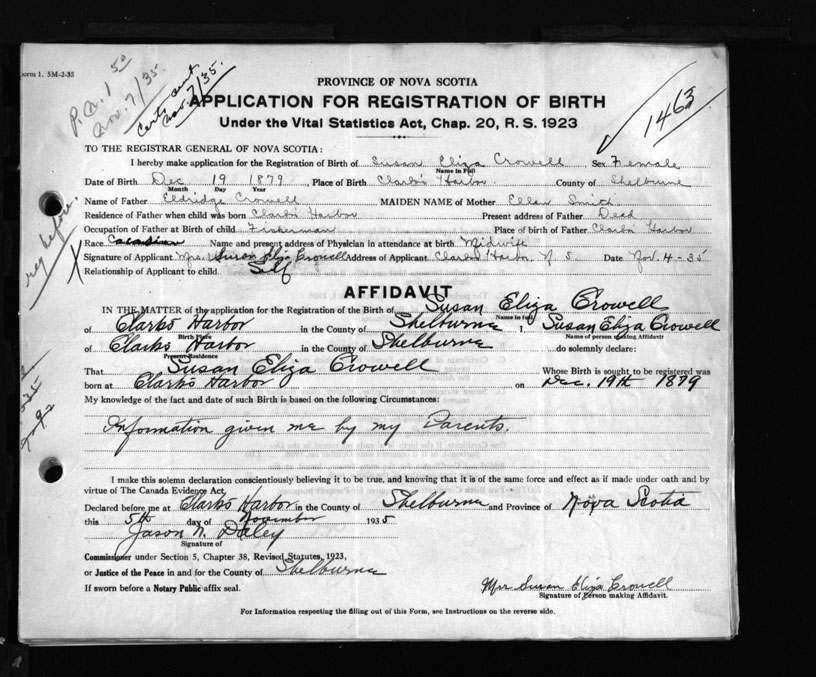 Form 1. 5M-2-35
P.N. 1 50
Nov. 7/35
Certs sent
Nov. 7/35.
1463
PROVINCE OF NOVA SCOTIA
APPLICATION FOR REGISTRATION OF BIRTH
Under the Vital Statistics Act, Chap. 20, R. S. 1923
TO THE REGISTRAR GENERAL OF NOVA SCOTIA:
I hereby make application for the Registration of Birth of Susan Eliza Crowell Sex Female
Name in Full
Date of Birth Dec 19 1879, Place of Birth Clarks Harbor County of Shelburne
Month Day Year
Name of Father Eldridge Crowell MAIDEN NAME of Mother Ellen Smith
Residence of Father when child was born Clarks Harbor Present address of Father Dead
Occupation of Father at Birth of child Fisherman Place of birth of Father Clarks Harbor
Race Name and present address of Physician in attendance at birth Midwife
Signature of Applicant Mrs. Susan Eliza Crowell Address of Applicant Clarks Harbor, N S. Date Nov. 4-35
Relationship of Applicant to child Self
reg before.
AFFIDAVIT
IN THE MATTER of the application for the Registration of Birth of Susan Eliza Crowell
Name in Full
of Clarks Harbor in the County of Shelburne I, Susan Eliza Crowell
Birth Place Name of person making Affidavit
of Clarks Harbor in the County of Shelburne do solemnly declare:
Present Residence
That Susan Eliza Crowell Whose Birth is sought to be registered was
born at Clarks Harbor on Dec. 19th 1879
My knowledge of the fact and date of such Birth is based on the following Circumstances:
Information given me by my Parents.
I make this solemn declaration conscientiously believing it to be true, and knowing that it is of the same force and effect as if made under oath and by
virtue of The Canada Evidence Act.
Declared before me at Clarks Harbor in the County of Shelburne and Province of Nova Scotia
this 5th day of November 1935
Jason N. Daley
Signature of
Commissioner under Section 5, Chapter 38, Revised Statutes, 1923,
or Justice of the Peace in and for the County of Shelburne
If sworn before a Notary Public affix seal.
Mrs Susan Eliza Crowell
Signature of Person making Affidavit.
For Information respecting the filling out of this Form, see Instructions on the reverse side.